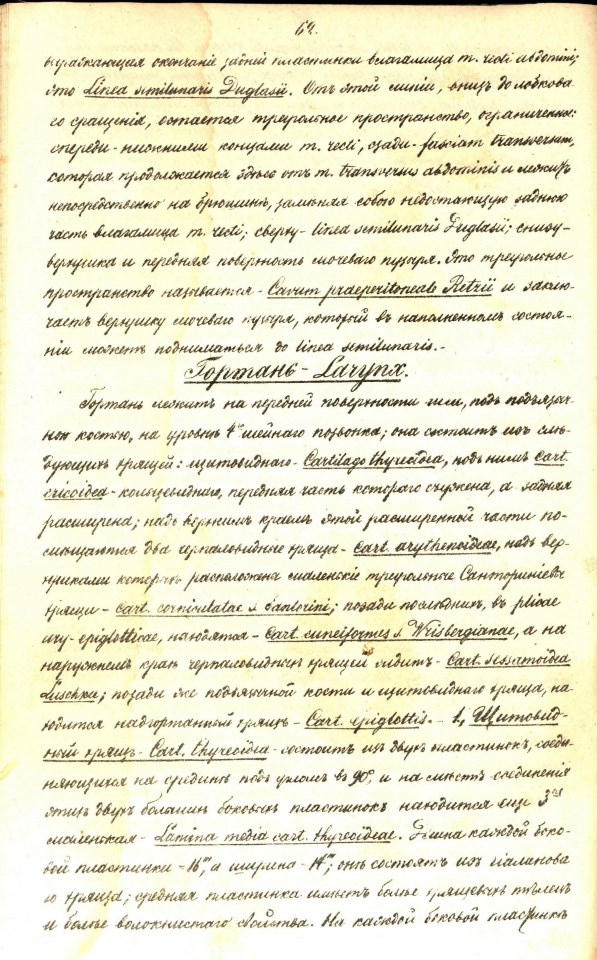 62.
выражающая окончаніе задней пластинки влагалища m. recti abdomini;
это Linea semilunaris Duglasii. Отъ этой линіи, внизъ до лобкова-
го сращенія, остается треугольное пространство, ограниченное:
спереди - нижними концами m. recti, сзади - fasciam transversam,
которая продолжается здѣсь отъ m. transversus abdominis и лежитъ
непосредственно на брюшинѣ, замѣняя собою недостающую заднюю
часть влагалища m. recti; сверху - linea semilunaris Duglasii; снизу -
верхушка и передняя поверхность мочеваго пузыря. Это треугольное
пространство называется - Cavum praeperitoneale Retzii и заклю-
чаетъ верхушку мочеваго пузыря, который въ наполненномъ состоя-
ніи можетъ подниматься до linea semilunaris. -
Гортань - Larynx.
Гортань лежитъ на передней поверхности шеи, подъ подъязыч-
ной костью, на уровнѣ 4го шейнаго позвонка; она состоитъ изъ слѣ-
дующихъ хрящей: щитовиднаго - Cartilago thyreoidea, подъ нимъ cart.
cricoidea - кольцевиднаго, передняя часть котораго съужена, а задняя
расширена; надъ верхнимъ краемъ этой расширенной части по-
мѣщаются два черпаловидные хряща - cart. arythenoideae, надъ вер-
хушками которыхъ расположены маленькіе треугольные Санториніевы
хрящи - cart. corniculatae s. Santorini; позади послѣднихъ, въ plicae
ary-epiglotticae, находятся - Cart. cuneiformes s. Wrisbergianae, а на
наружнемъ краѣ черпаловидныхъ хрящей сидитъ - Cart. sessamoidea
Luschka; позади же подъязычной кости и щитовиднаго хряща, на-
ходится надгортанный хрящъ - Cart. epiglottis. - 1, Щитовид-
ный хрящъ - Cart. thyreoidea - состоитъ изъ двухъ пластинокъ, соеди-
няющихся на срединѣ подъ угломъ въ 90°, и на мѣстѣ соединенія
этихъ двухъ большихъ боковыхъ пластинокъ находится еще 3ья
маленькая - Lamina media cart. thyreoideae. Длина каждой боко-
вой пластинки - 16''', а ширина - 14'''; онѣ состоятъ изъ гіалинова-
го хряща; средняя пластинка имѣетъ болѣе хрящевыхъ тѣлецъ
и болѣе волокнистаго свойства. На каждой боковой пластинкѣ